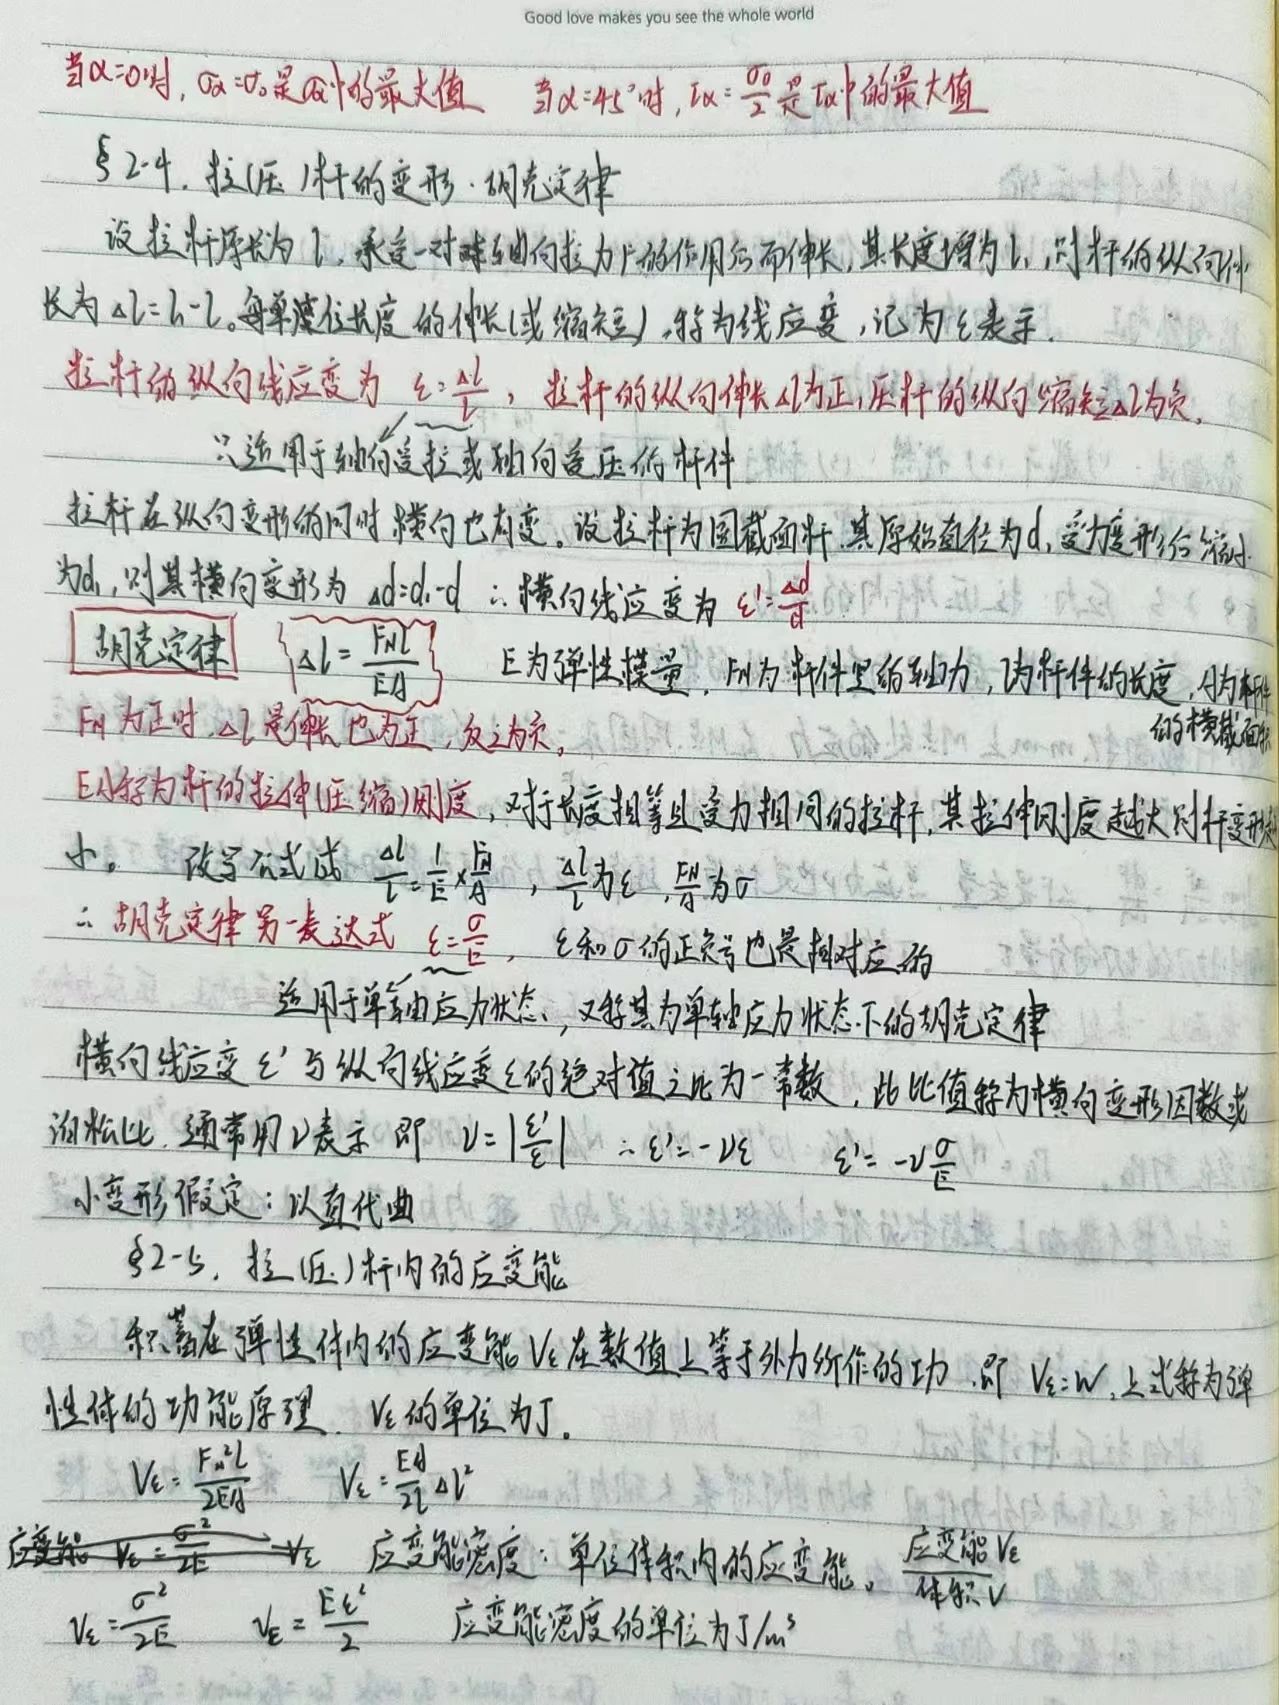 Good love makes you see the whole world
当α=0时,σα=σ0是σα中的最大值 当α=45°时,τα=σ0/2是τα中的最大值
§2-4. 拉(压)杆的变形.胡克定律
设拉杆原长为l,承受一对轴向拉力F的作用后而伸长,其长度增为l₁,则杆的纵向伸
长为Δl=l₁-l。每单位长度的伸长(或缩短),称为线应变,记为ε表示.
拉杆的纵向线应变为 ε=Δl/l,拉杆的纵向伸长Δl为正,压杆的纵向缩短Δl为负.
只适用于轴向受拉或轴向受压的杆件
拉杆在纵向变形的同时,横向也有变。设拉杆为圆截面杆,其原始直径为d,受力变形后缩小
为d₁,则其横向变形为 Δd=d₁-d ∴横向线应变为 ε'=Δd/d
胡克定律 Δl=FNl/EA E为弹性模量,FN为杆件里的轴力,l为杆件的长度,A为杆件
的横截面积
FN为正时,Δl是伸长也为正,反之为负。
EA称为杆的拉伸(压缩)刚度,对于长度相等且受力相同的拉杆,其拉伸刚度越大则杆变形越
小。 改写公式成 Δl/l=1/E×FN/A,Δl/l为ε,FN/A为σ
∴胡克定律另一表达式 ε=σ/E,ε和σ的正负号也是相对应的
适用于单轴应力状态,又称其为单轴应力状态下的胡克定律
横向线应变ε'与纵向线应变ε的绝对值之比为一常数,此比值称为横向变形因数或
泊松比,通常用ν表示 即 ν=|ε'/ε| ∴ε'=-νε ε'=-νσ/E
小变形假定:以直代曲
§2-5. 拉(压)杆内的应变能
积蓄在弹性体内的应变能Vε在数值上等于外力所作的功,即 Vε=W,上式称为弹
性体的功能原理. Vε的单位为J。
Vε=FN²l/2EA Vε=EA/2l Δl²
应变能 vε=σ²/2E Vε 应变能密度:单位体积内的应变能。 应变能Vε/体积V
vε=σ²/2E vε=Eε²/2 应变能密度的单位为J/m³